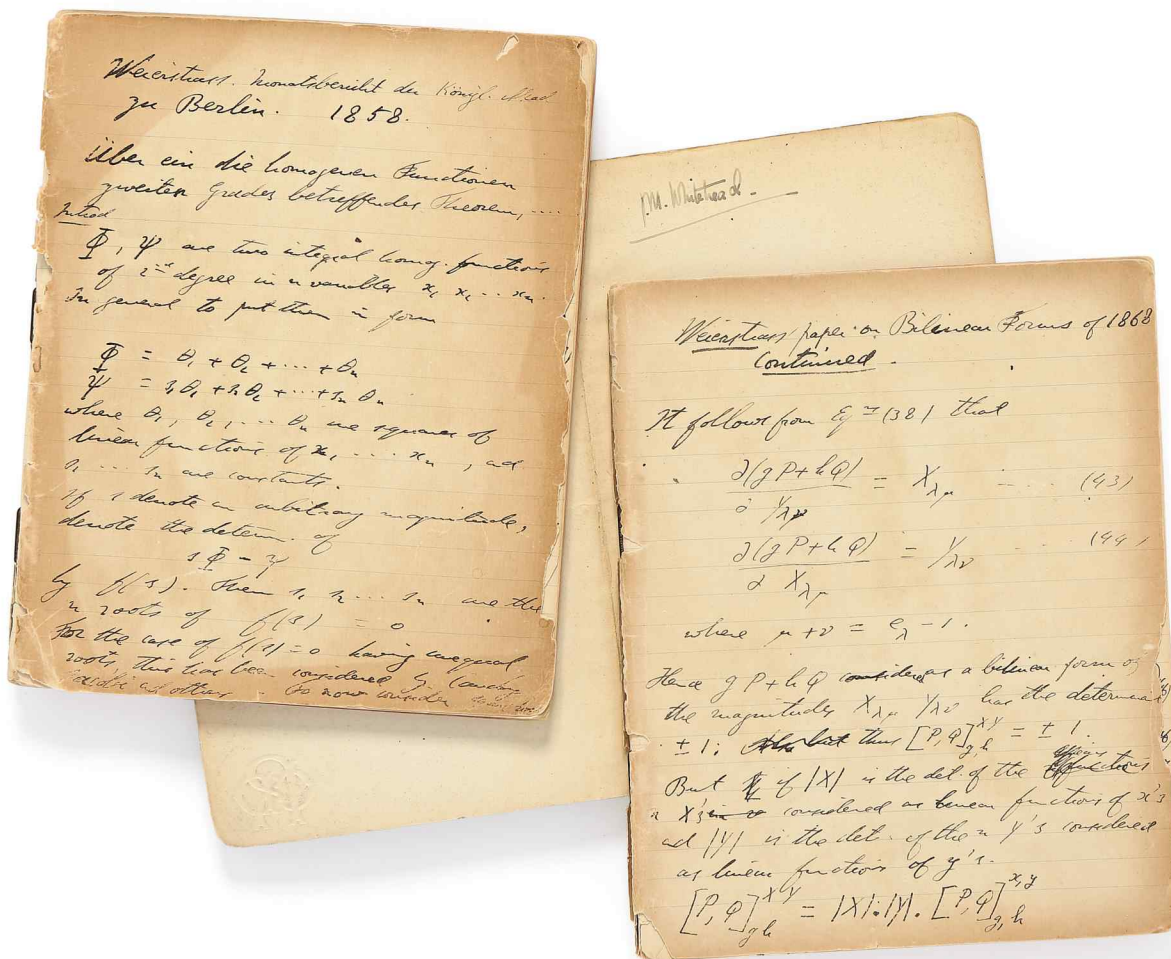 Weierstrass. Monatsbericht der Königl. Akad
zu Berlin. 1858.
Über ein die homogenen Functionen
zweiten Grades betreffendes Theorem, ....
Introd
Φ, Ψ are two integral homog. functions
of 2nd degree in n variables x₁ x₂ ... xₙ.
In general to put them in form
Φ = θ₁ + θ₂ + ... + θₙ
Ψ = s₁θ₁ + s₂θ₂ + ... + sₙθₙ
where θ₁, θ₂, ... θₙ are squares of
linear functions of x₁, ... xₙ, and
s₁ ... sₙ are constants.
If s denote an arbitrary magnitude,
denote the determ. of
sΦ - Ψ
by f(s). Then s₁ s₂ ... sₙ are the
n roots of f(s) = 0
For the case of f(s) = 0 having unequal
roots, this has been considered by Cauchy
Jacobi and others. To now consider
M. Whitehead.
Weierstrass' paper on Bilinear Forms of 1868
Continued.
It follows from Eqⁿ (38) that
∂(gP+hQ) / ∂Y_λν = X_λμ ... (43)
∂(gP+hQ) / ∂X_λμ = Y_λν ... (44)
where μ + ν = e_λ - 1.
Hence gP + hQ considered as a bilinear form of
the magnitudes X_λμ Y_λν has the determinant
± 1; thus [P,Q]^XY_g,h = ± 1.
But if |X| is the det. of the
n X's considered as linear functions of x's
and |Y| is the det. of the n Y's considered
as linear functions of y's.
[P,Q]^XY_gh = |X|:|Y|. [P,Q]^x,y_g,h